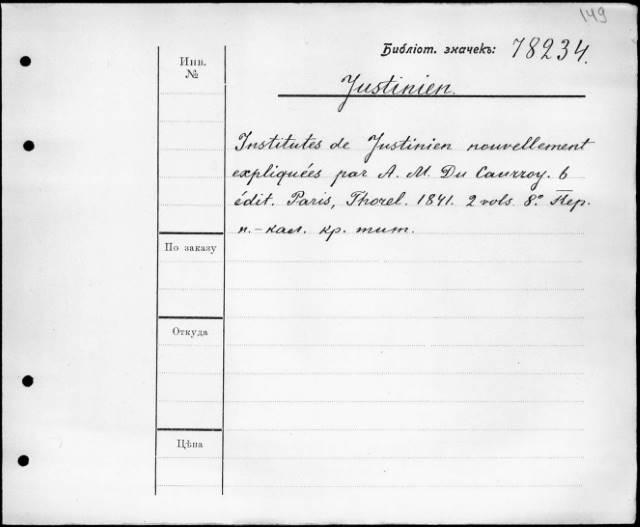 149
Библіот. значекъ: 78234.
Инв.
№
Justinien.
Institutes de Justinien nouvellement
expliquées par A. M. Du Caurroy. 6
édit. Paris, Thorel. 1841. 2 vols. 8º Пер.
п.-кал. кр. тит.
По заказу
Откуда
Цѣна